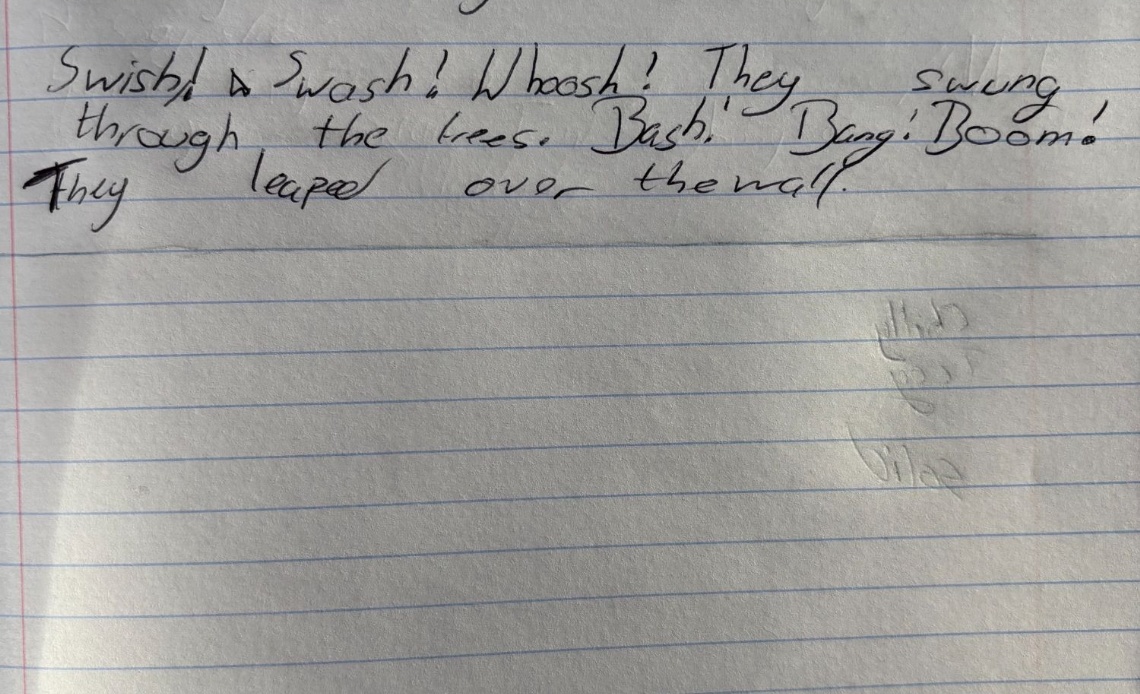 Swish! Swash! Whoosh! They swung
through the trees. Bash! Bang! Boom!
They leaped over the wall.
chilly
Icy
solid